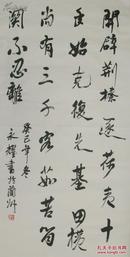 開闢荆榛逐荷夷十
年始克復先基田横
尚有三千客茹苦間
關不忍離
癸巳年冬
永耀書於蘭州